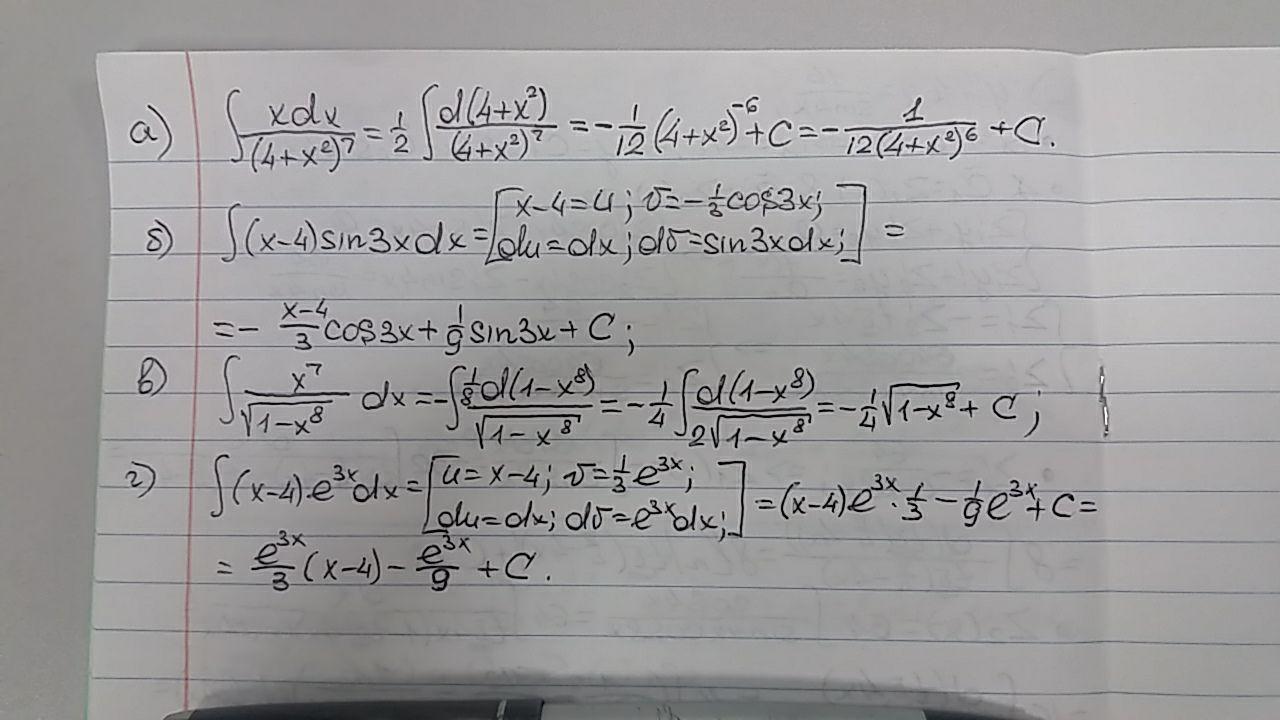 а) ∫ xdx/(4+x²)⁷ = 1/2 ∫ d(4+x²)/(4+x²)⁷ = -1/12 (4+x²)⁻⁶ + C = - 1/(12(4+x²)⁶) + C.
б) ∫(x-4)sin3xdx = [x-4=u; v=-1/3 cos3x; du=dx; dv=sin3xdx;] =
= - (x-4)/3 cos3x + 1/9 sin3x + C;
в) ∫ x⁷/√(1-x⁸) dx = -∫ 1/8 d(1-x⁸)/√(1-x⁸) = -1/4 ∫ d(1-x⁸)/(2√(1-x⁸)) = -1/4 √(1-x⁸) + C;
г) ∫(x-4)·e³ˣdx = [u=x-4; v=1/3 e³ˣ; du=dx; dv=e³ˣdx;] = (x-4)e³ˣ · 1/3 - 1/9 e³ˣ + C =
= e³ˣ/3 (x-4) - e³ˣ/9 + C.